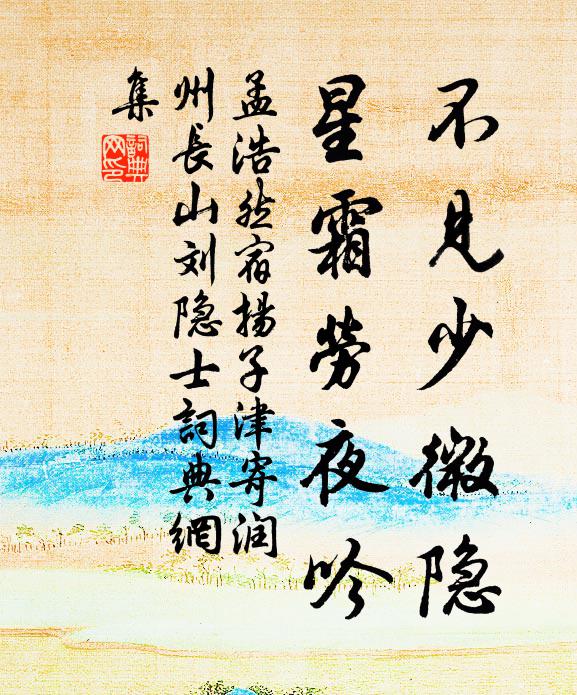 不见少微隐
星霜劳夜吟
孟浩然宿揚子津寄润
州長山刘隐士詞典網
集
詞典网印